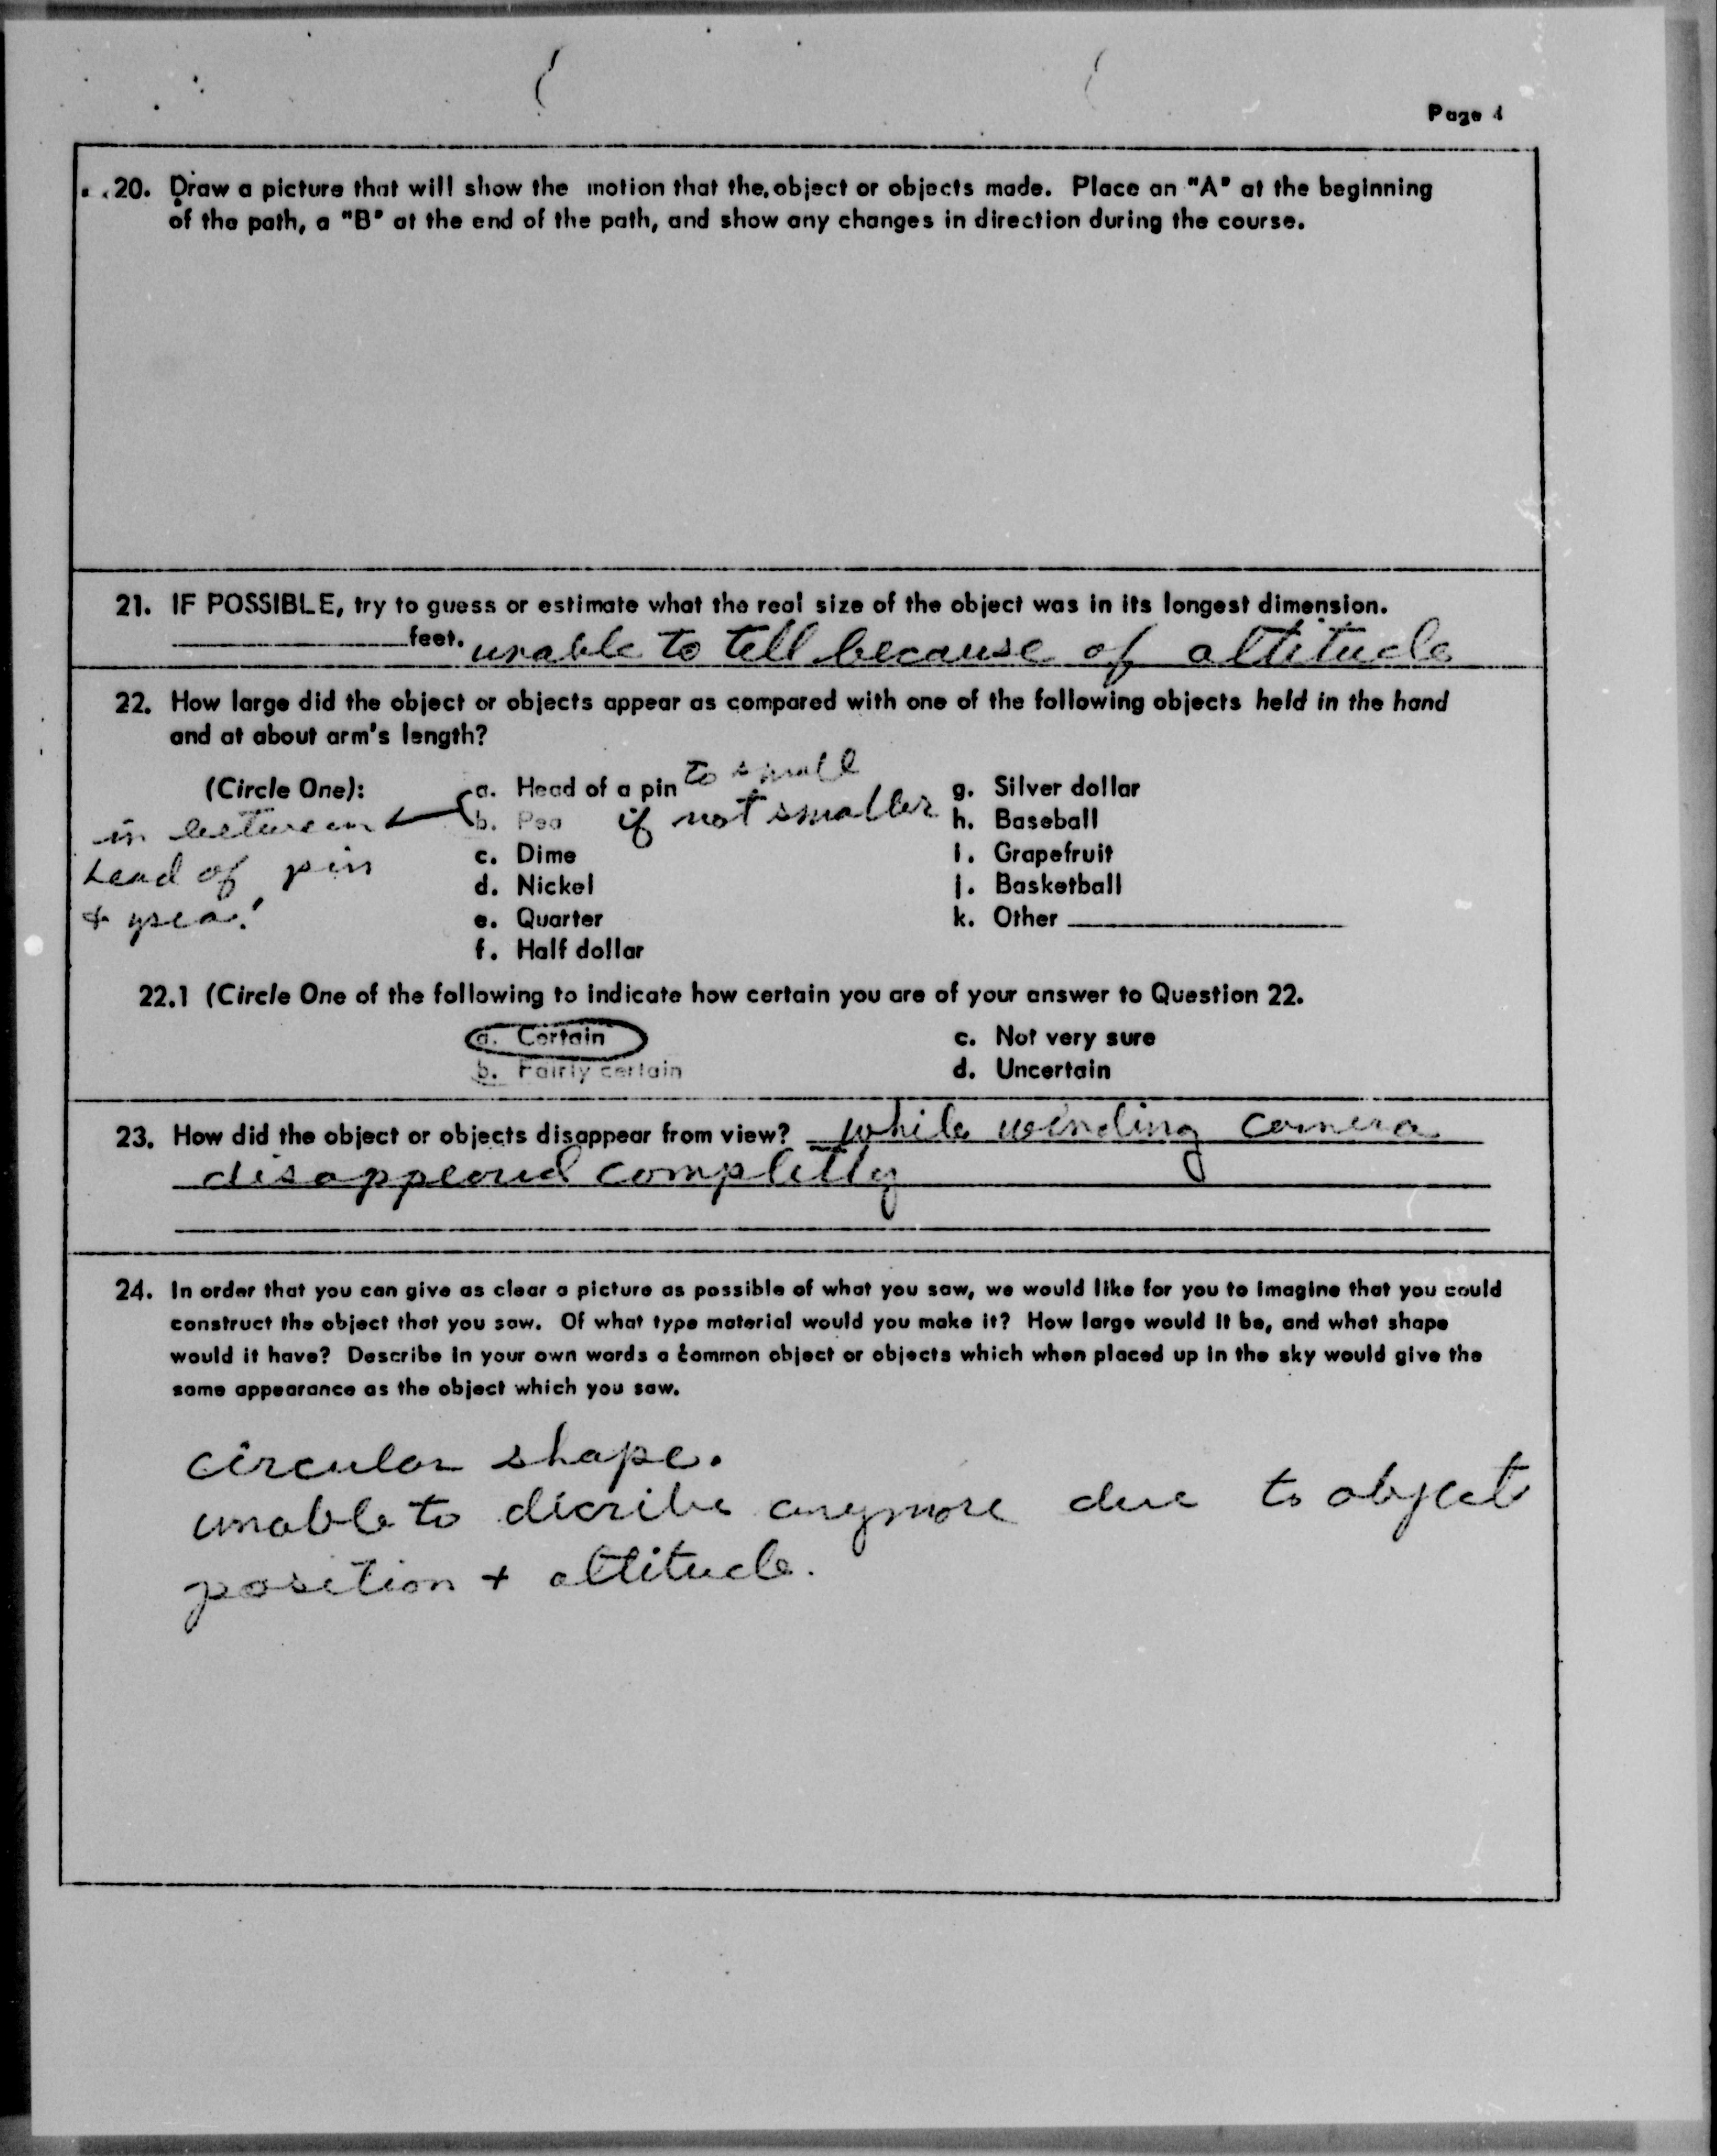 Page 4
20. Draw a picture that will show the motion that the object or objects made. Place an "A" at the beginning
of the path, a "B" at the end of the path, and show any changes in direction during the course.
21. IF POSSIBLE, try to guess or estimate what the real size of the object was in its longest dimension.
feet. unable to tell because of altitude
22. How large did the object or objects appear as compared with one of the following objects held in the hand
and at about arm's length?
(Circle One):
in between
head of pin
+ pea!
a. Head of a pin to small
b. Pea if not smaller
c. Dime
d. Nickel
e. Quarter
f. Half dollar
g. Silver dollar
h. Baseball
i. Grapefruit
j. Basketball
k. Other
22.1 (Circle One of the following to indicate how certain you are of your answer to Question 22.
a. Certain
b. Fairly certain
c. Not very sure
d. Uncertain
23. How did the object or objects disappear from view? while winding camera
disappeared completly
24. In order that you can give as clear a picture as possible of what you saw, we would like for you to imagine that you could
construct the object that you saw. Of what type material would you make it? How large would it be, and what shape
would it have? Describe in your own words a common object or objects which when placed up in the sky would give the
same appearance as the object which you saw.
circular shape.
unable to dicribe anymore due to object
position + altitude.